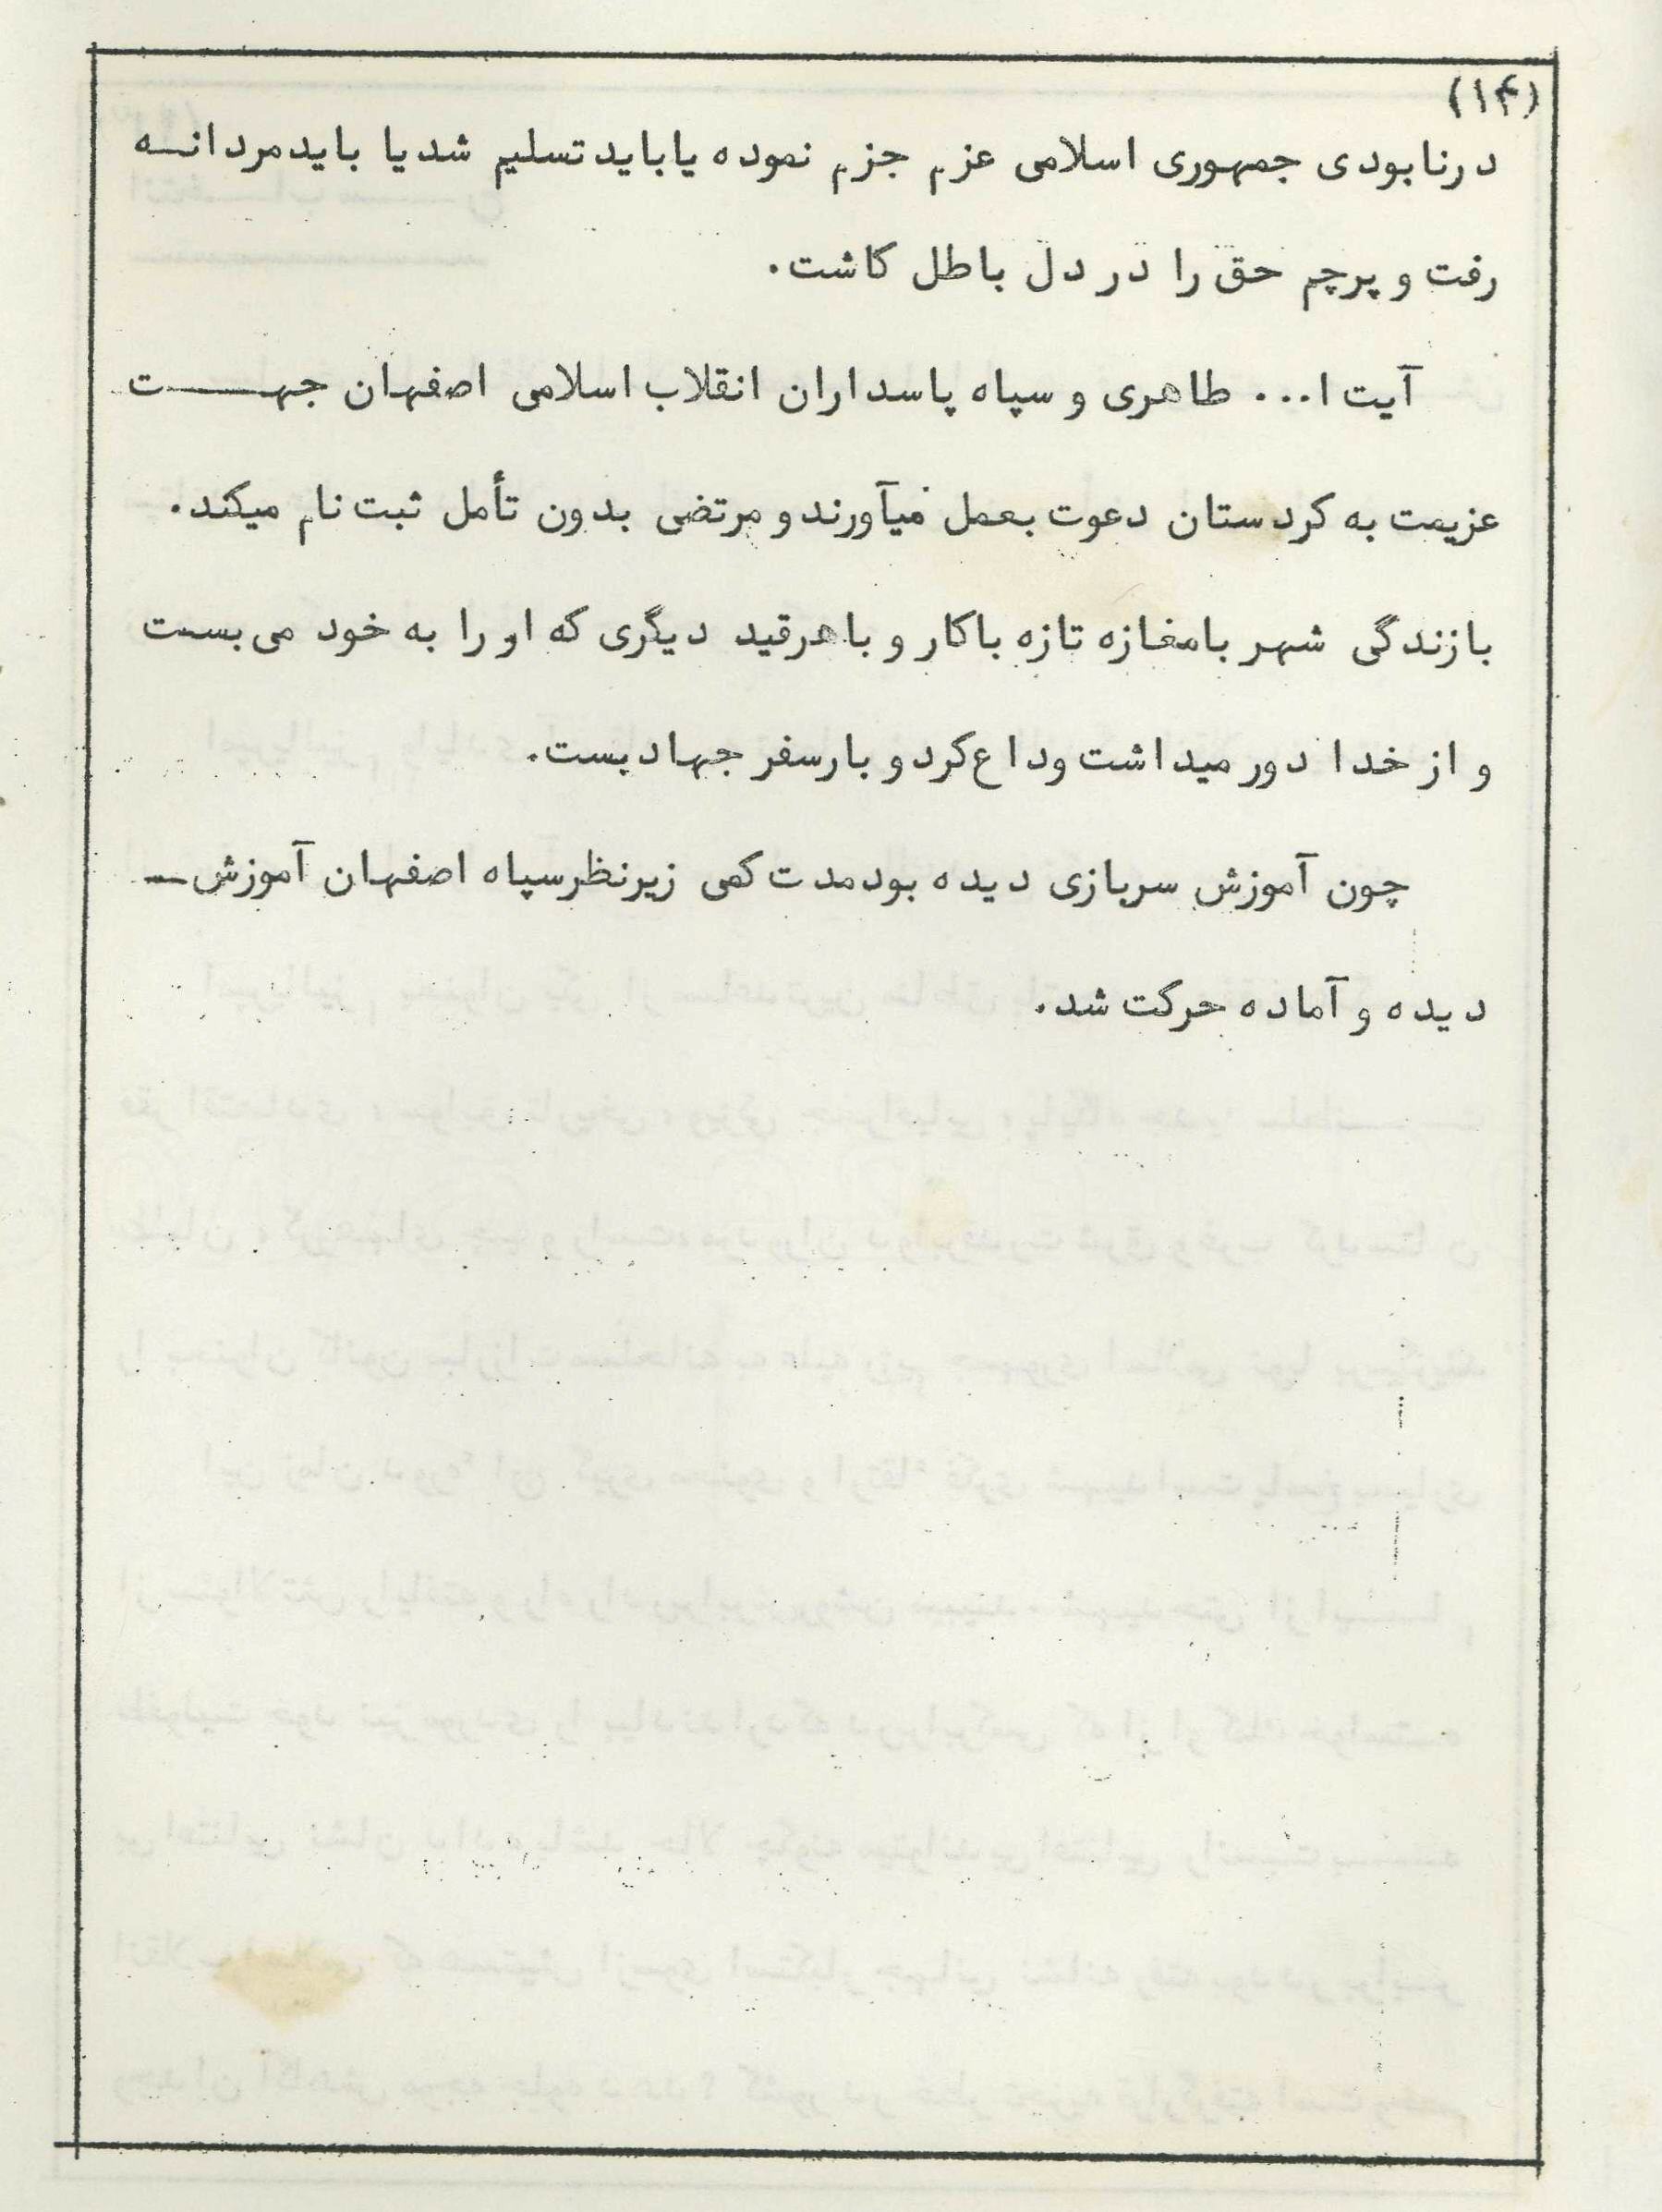 (۱۴)
درنابودی جمهوری اسلامی عزم جزم نموده یا باید تسلیم شد یا باید مردانـه
رفت و پرچم حق را در دل باطل کاشت.
آیت ا... طاهری و سپاه پاسداران انقلاب اسلامی اصفهان جهــت
عزیمت به کردستان دعوت بعمل میآورند و مرتضی بدون تأمل ثبت نام میکند.
بازندگی شهر بامغازه تازه باکار و با هرقید دیگری که او را به خود می بست
و از خدا دور میداشت وداع کرد و بار سفر جهاد بست.
چون آموزش سربازی دیده بود مدت کمی زیرنظر سپاه اصفهان آموزش ـ
دیده و آماده حرکت شد.